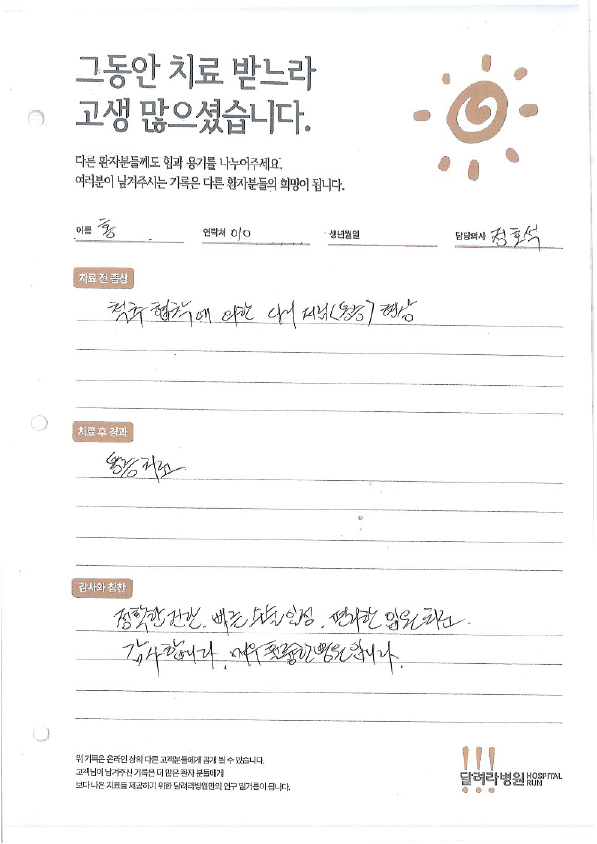 그동안 치료 받느라
고생 많으셨습니다.
다른 환자분들께도 힘과 용기를 나누어주세요.
여러분이 남겨주시는 기록은 다른 환자분들의 희망이 됩니다.
이름 홍 연락처 010 생년월일 담당의사 정호석
치료 전 증상
척추 협착에 의한 다리 저림(통증) 현상
치료 후 경과
통증 치료
감사와 칭찬
정확한 진단. 빠른 수술 일정. 편리한 입원 치료.
감사합니다. 매우 훌륭한 병원입니다.
위 기록은 온라인 상의 다른 고객분들에게 공개 될 수 있습니다.
고객님이 남겨주신 기록은 더 많은 환자 분들에게
보다 나은 치료를 제공하기 위한 달려라병원만의 연구 밑거름이 됩니다.
달려라병원 HOSPITAL
RUN